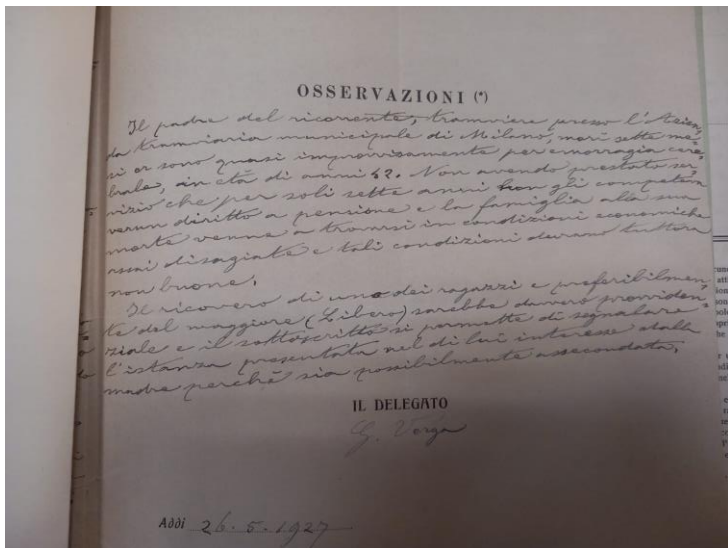 OSSERVAZIONI (*)
Il padre del ricorrente, tramviere presso l'Azien,
da tramviaria municipale di Milano, morì sette me,
si or sono quasi improvvisamente per emorragia cere,
brale, in età di anni 42. Non avendo prestato ser,
vizio che per soli sette anni non gli competeva
verun diritto a pensione e la famiglia alla sua
morte venne a trovarsi in condizioni economiche
assai disagiate e tali condizioni durano tuttora
non buone.
Il ricovero di uno dei ragazzi e preferibilmen,
te del maggiore (Libero) sarebbe davvero provviden,
ziale e il sottoscritto si permette di segnalare
l'istanza presentata nel di lui interesse dalla
madre perchè sia possibilmente assecondata.
IL DELEGATO
G. Verga
Addì 26.5.1927